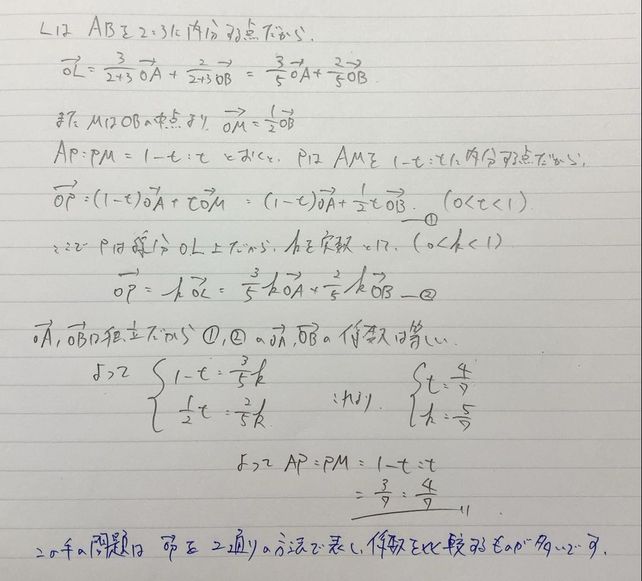 LはABを2:3に内分する点だから、
→OL = 3/(2+3) →OA + 2/(2+3) →OB = 3/5 →OA + 2/5 →OB
また MはOBの中点より →OM = 1/2 →OB
AP:PM = 1-t:t とおくと、PはAMを1-t:tに内分する点だから、
→OP = (1-t)→OA + t→OM = (1-t)→OA + 1/2 t →OB. (0<t<1) —①
ここで Pは線分OL上だから、kを実数として、(0<k<1)
→OP = k→OL = 3/5 k→OA + 2/5 k→OB —②
→OA, →OBは独立だから ①,②の→OA, →OBの係数は等しい.
よって { 1-t = 3/5 k これより { t = 4/7
1/2 t = 2/5 k k = 5/7
よって AP:PM = 1-t:t
= 3/7 : 4/7
この手の問題は →OP を 2通りの方法で表し、係数を比較するものが多いです。